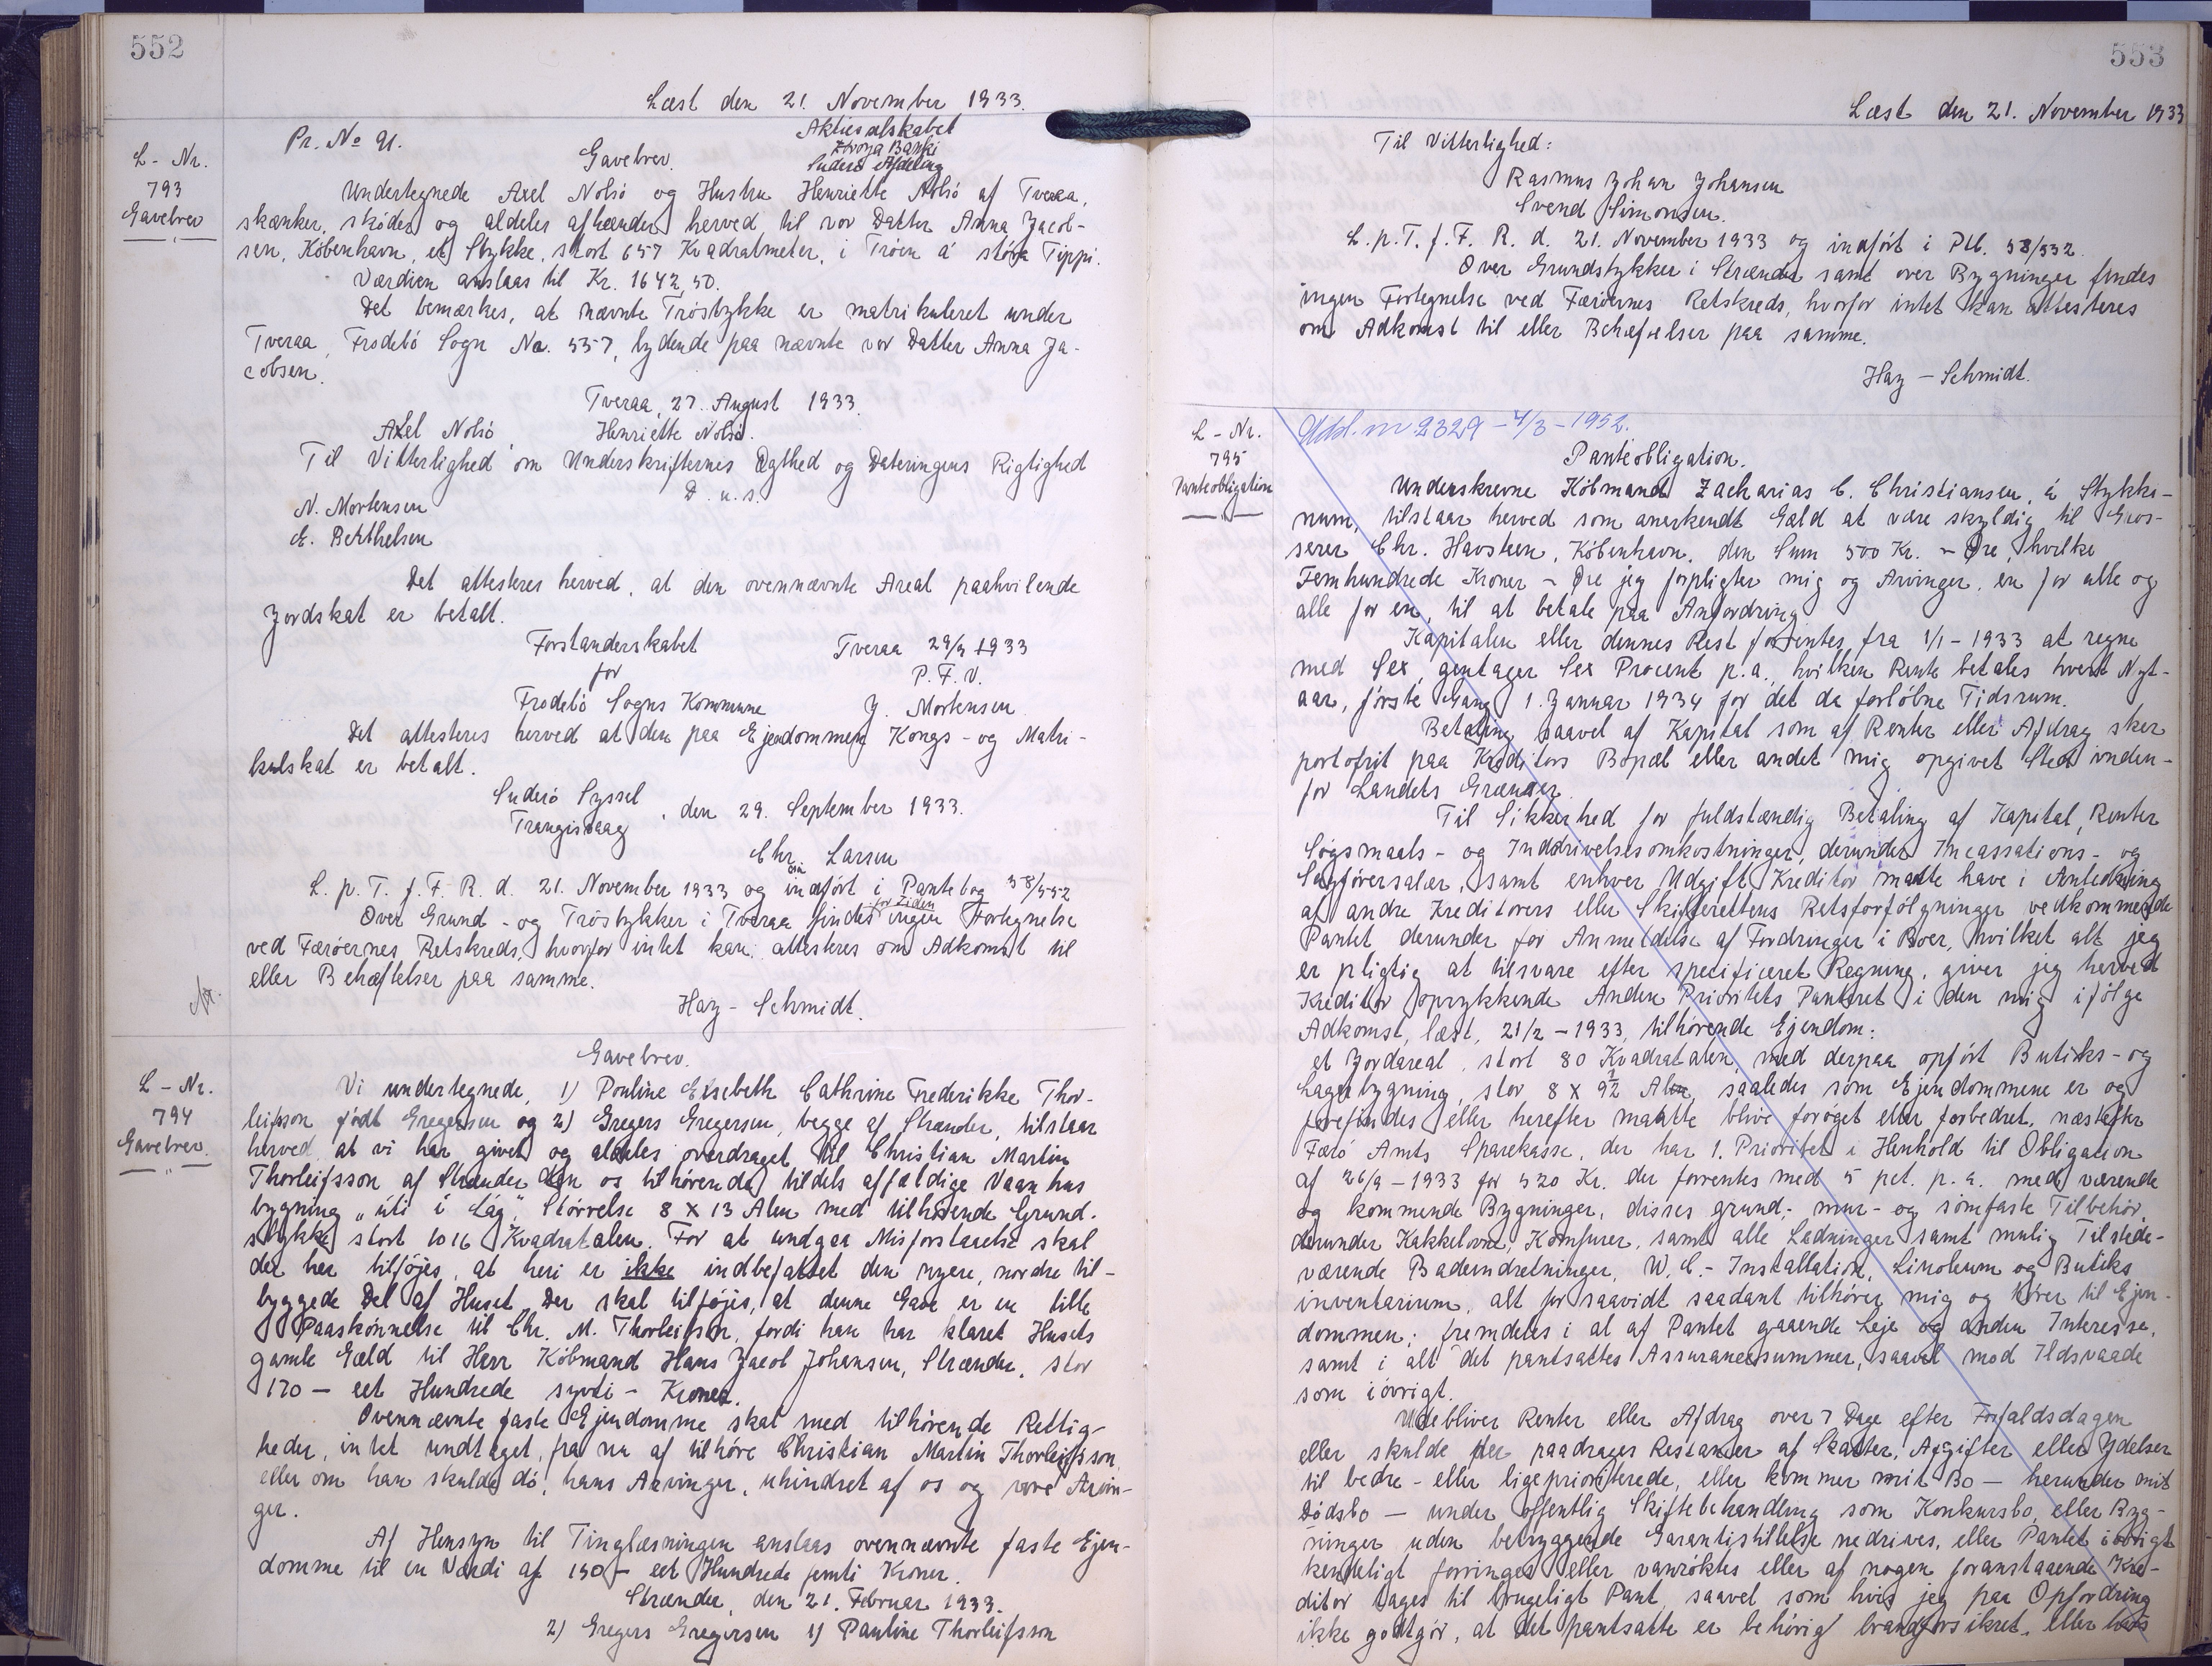 552
Læst den 21. November 1933.
Pr. No 91.
Aktieselskabet
Föroya Banki
Suderö Afdeling
L-Nr.
793
Gavebrev
Gavebrev.
Undertegnede Axel Nolsö og Hustru Henriette Nolsö af Tveraa,
skænker, skøder og aldeles afhænder herved til vor Datter Anna Jacob-
sen, København, et Stykke, stort 657 Kvadratmeter, i Tröin á stóra Tippi.
Værdien anslaas til Kr. 1642,50.
Det bemærkes, at nævnte Tröstykke er matrikuleret under
Tveraa, Frodebö Sogn No. 557, lydende paa nævnte vor Datter Anna Ja-
cobsen.
Tveraa, 27. August 1933.
Axel Nolsö, Henriette Nolsö.
Til Vitterlighed om Underskrifternes Ægthed og Dateringens Rigtighed
D. u. s.
N. Mortensen
E. Berthelsen
Det attesteres herved, at den ovennævnte Areal paahvilende
Jordskat er betalt.
Forstanderskabet Tveraa 29/9 1933
for P. F. V.
Frodebö Sogns Kommune J. Mortensen
Det attesteres herved at den paa Ejendommen Kongs- og Matri-
kulskat er betalt.
Suderö Syssel
Trangisvaag, den 29. September 1933.
Chr. Larsen
L. p. T. f. F. R. d. 21. November 1933 og indfört i Pantebog 58/552
Over Grund- og Tröstykker i Tveraa findes for Tiden ingen Fortegnelse
ved Færöernes Retskreds, hvorfor intet kan attesteres om Adkomst til
eller Behæftelser paa samme.
Hay-Schmidt.
L-Nr.
794
Gavebrev.
Gavebrev.
Vi undertegnede, 1) Pouline Elsebeth Cathrine Frederikke Thor-
leifsson födt Gregersen og 2) Gregers Gregersen, begge af Strænder, tilstaar
herved at vi har givet og aldeles overdraget til Christian Martin
Thorleifsson af Strænder den os tilhørende tildels affældige Vaanhus
bygning „úti í Lág“, Störrelse 8 X 13 Alen med tilhörende Grund-
stykke stort 1016 Kvadratalen. For at undgaa Misforstaaelse skal
der her tilföjes, at heri er ikke indbefattet den nyere, nordre til-
byggede Del af Huset. Der skal tilföjes, at denne Gave er en lille
Paaskönnelse til Chr. M. Thorleifsson, fordi han har klaret Husets
gamle Gæld til Herr Köbmand Hans Jacob Johansen, Strænder, stor
170 - eet Hundrede syvti - Kroner.
Ovennævnte faste Ejendomme skal med tilhörende Rettig-
heder, intet undtaget, fra nu af tilhöre Christian Martin Thorleifsson
eller om han skulde dö, hans Arvinger, uhindret af os og vore Arvin-
ger.
Af Hensyn til Tinglæsningen anslaas ovennævnte faste Ejen-
domme til en Værdi af 150 - eet Hundrede femti Kroner.
Strænder, den 21. Februar 1933.
2) Gregers Gregersen 1) Pauline Thorleifsson
553
Læst den 21. November 1933
Til Vitterlighed:
Rasmus Johan Johansen
Svend Simonsen.
L. p. T. f. F. R. d. 21. November 1933 og indfört i Ptb. 58/552.
Over Grundstykker i Strænder samt over Bygninger findes
ingen Fortegnelse ved Færöernes Retskreds, hvorfor intet kan attesteres
om Adkomst til eller Behæftelser paa samme.
Hay-Schmidt.
L-Nr.
795
Panteobligation
nr. 2329 - 4/3 - 1952.
Panteobligation.
Underskrevne Köbmand Zacharias C. Christiansen, á Stykki-
num, tilstaar herved som anerkendt Gæld at være skyldig til Gros-
serer Chr. Havsteen, København, den Sum 500 Kr. - Øre, hvilke
Femhundrede Kroner - Øre jeg forpligter mig og Arvinger, en for alle og
alle for en, til at betale paa Anfordring.
Kapitalen eller dennes Rest forrentes fra 1/1 - 1933 at regne
med Sex, gentager Sex Procent p.a., hvilken Rente betales hvert Nyt-
aar, förste Gang 1. Januar 1934 for det da forlöbne Tidsrum.
Betaling saavel af Kapital som af Renter eller Afdrag sker
portofrit paa Kreditors Bopæl eller andet mig opgivet Sted inden-
for Landets Grænser.
Til Sikkerhed for fuldstændig Betaling af Kapital, Renter
Sögsmaals- og Inddrivelsesomkostninger, derunder Incassations- og
Sagförersalær, samt enhver Udgift, Kreditor maatte have i Anledning
af andre Kreditorers eller Skifterettens Retsforfölgninger vedkommende
Pantet, derunder for Anmeldelse af Fordringer i Boer, hvilket alt jeg
er pligtig at tilsvare efter specificeret Regning, giver jeg herved
Kreditor oprykkende Anden Prioritets Panteret i den mig ifölge
Adkomst, læst, 21/2 - 1933, tilhörende Ejendom:
et Jordareal, stort 80 Kvadratalen, med derpaa opfört Butiks- og
Lagerbygning, stor 8 X 9½ Alen, saaledes som Ejendommene er og
forefindes eller herefter maatte blive foröget eller forbedret, næstefter
Færö Amts Sparekasse, der har 1. Prioritet i Henhold til Obligation
af 26/9 - 1933 for 520 Kr. der forrentes med 5 pct. p. a. med værende
og kommende Bygninger, disses grund-, mur- og sömfaste Tilbehör,
derunder Kakkelovne, Komfurer, samt alle Ledninger samt mulig Tilstede-
værende Badeindretninger, W. C.- Installation, Linoleum og Butiks
inventarium, alt for saavidt saadant tilhörer mig og hörer til Ejen-
dommen; fremdeles i al af Pantet gaaende Leje og anden Interesse,
samt i alt det pantsattes Assurancesummer, saavel mod Ildsvaade
som iövrigt.
Udebliver Renter eller Afdrag over 7 Dage efter Forfaldsdagen
eller skulde der paadrages Restancer af Skatter, Afgifter eller Ydelser
til bedre- eller ligeprioriterede, eller kommer mit Bo - herunder mit
Dödsbo - under offentlig Skiftebehandling som Konkursbo, eller Byg-
ninger uden betryggende Garantistillelse nedrives, eller Pantet iövrigt
kendeligt forringes eller vanröktes eller af nogen foranstaaende Kre-
ditor tages til brugeligt Pant, saavel som hvis jeg paa Opfordring
ikke godtgör, at det pantsatte er behörig brandforsikret, eller hvis